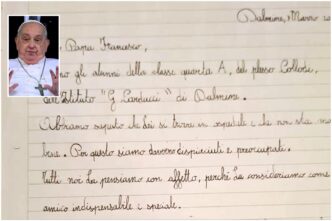 Dalmine, Marzo
Papa Francesco,
gli alunni della classe quarta A, del plesso Collodi,
dell'Istituto "G. Carducci" di Dalmine.
Abbiamo saputo che Lei si trova in ospedale e che non sta
bene. Per questo siamo davvero dispiaciuti e preoccupati.
Tutti noi La pensiamo con affetto, perché La consideriamo come
amico indispensabile e speciale.